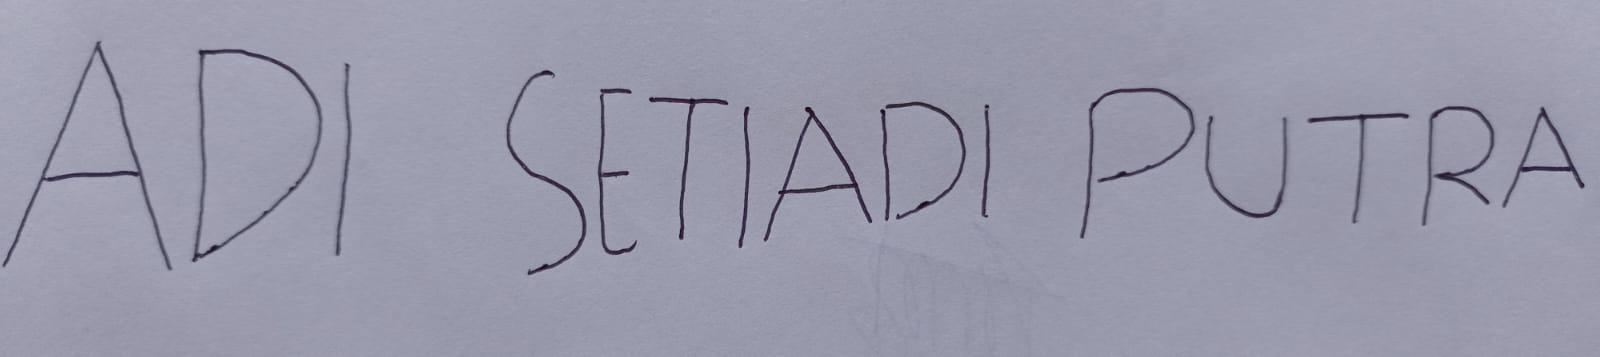 ADI SETIADI PUTRA